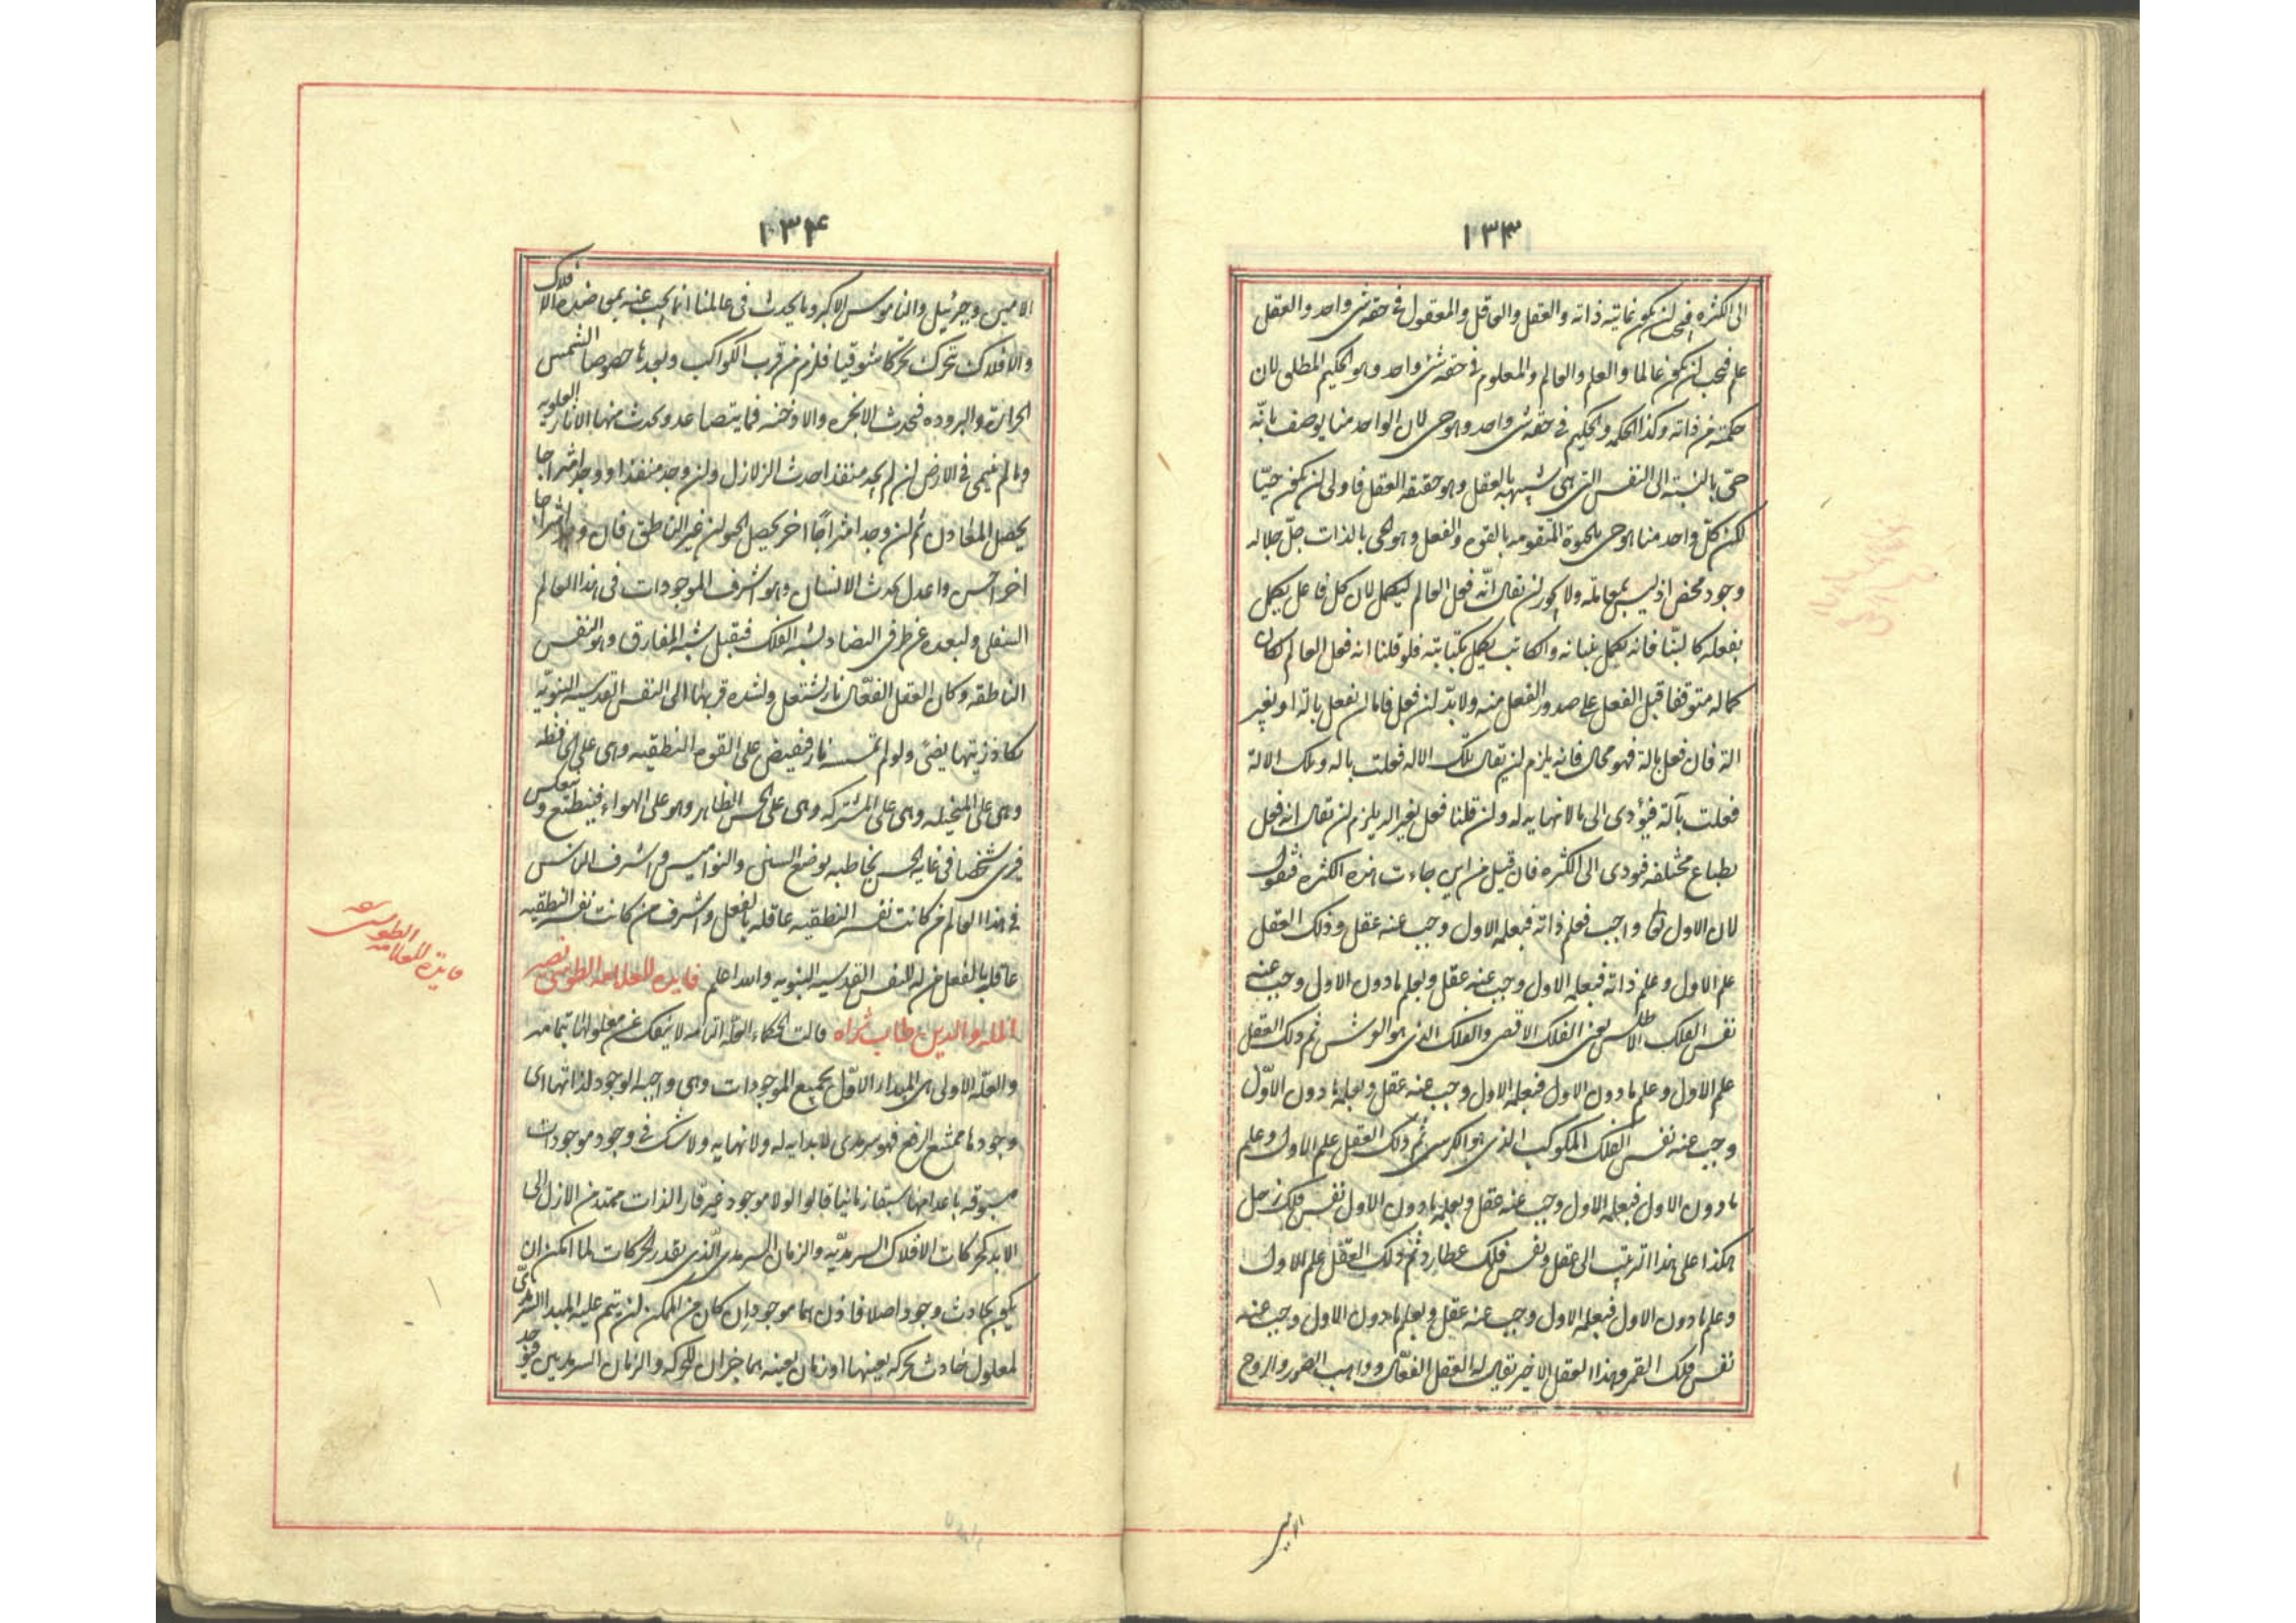 ١٣٣
الى الكثرة فيجب ان يكون غايته ذاته والعقل والعاقل والمعقول فى حقه شى واحد والعقل
علم فيجب ان يكون عالما والعلم والعالم والمعلوم فى حقه شى واحد وهو الحكيم المطلق لان
حكمته من ذاته وكذا الحكمه والحكيم فى حقه شى واحد وهو حى لان الواحد منا يوصف بانّه
حىّ بالنسبة الى النفس التى هى شبيهه بالعقل وهو حقيقه العقل فاولى ان يكون حيّا
لكن كلّ واحد منا هو حى بالحيوة المتقومه بالقوه والفعل وهو الحى بالذات جلّ جلاله
وجود محض اذ ليس بمهامله ولا يجوز ان يقال انّه فعل العالم ليكمل لان كل فاعل يكمل
بفعله كالبنّا فانه يكمل ببنيانه والكاتب يكمل بكتابته فلو قلنا انه فعل العالم لكان
كماله متوقفا قبل الفعل على صدور الفعل منه ولا بدّ ان فعل فاما ان يفعل بالة او بغير
الة فان فعل بالة فهو محال فانه يلزم ان يقال تلك الاله فعلت باله وتلك الالة
فعلت بآلة فيؤدى الى ما لا نهايه له وان قلنا فعل بغير اله يلزم ان يقال انه فعل
بطباع مختلفه فيودى الى الكثره فان قيل من اين جاءت هذه الكثره فنقول
لان الاول تعالى واجب فعلم ذاته فبعلمه الاول وجب عنه عقل وذلك العقل
علم الاول وعلم ذاته فبعلمه الاول وجب عنه عقل وبعلم ما دون الاول وجب عنه
نفس الفلك الاطلس يعنى الفلك الاقصى والفلك الذى هو العرش ثم ذلك العقل
علم الاول وعلم ما دون الاول فبعلمه الاول وجب عنه عقل وبعلمه ما دون الاوّل
وجب عنه نفس الفلك المكوكب الذى هو الكرسى ثم ذلك العقل علم الاول وعلم
ما دون الاول فبعلمه الاول وجب عنه عقل وبعلمه ما دون الاول نفس فلك زحل
هكذا على هذا الترتيب الى عقل ونفس فلك عطارد ثم ذلك العقل علم الاول
وعلم ما دون الاول فبعلمه الاول وجب عنه عقل وبعلم ما دون الاول وجب عنه
نفس فلك القمر وهذا العقل الاخير يقال له العقل الفعّال وواهب الصور والروح
الامين
١٣٤
الامين وجبرئيل والناموس الاكبر وما يحدث فى عالمنا انما يجب عنه بمعاضدة الافلاك
والافلاك تتحرك تحركا شوقيا فلزم من قرب الكواكب وبعدها خصوصا الشمس
الحرارة والبروده فيحدث الابخره والادخنه فما يتصاعد ويحدث منها الاثار العلويه
وما لم فى الارض ان لم يجد منفذا احدث الزلازل وان وجد منفذا ووجد امتزاجا
يحصل المعادن ثم ان وجد امتزاجًا اخر يحصل الحيوان غير الناطق فان وجد امتزاجا
اخر احسن واعدل يحدث الانسان وهو اشرف الموجودات فى هذا العالم
السفلى ولبعده عن طرفى التضاد لشبه الفلك فيقبل شبه المفارق وهو النفس
الناطقه وكان العقل الفعّال نار يشتعل ولشده قربها الى النفس القدسيه النبويّه
يكاد زيتها يضئ ولو لم تمسسه نار فيفيض على القوه النطقيه وهى على الحافظه
وهى على المتخيله وهى على المشتركه وهى على الحس الظاهر وهو على الهواء فينطبع وينعكس
فيرى شخصا فى غايه الحسن يخاطبه بوضع السنن والنواميس واشرف الناس
فى هذا العالم من كانت نفسه النطقيه عاقله بالفعل واشرف من كانت نفسه النطقيه
عاقله بالفعل من له النفس القدسيه النبويه والله اعلم فايده للعلامه الطوسى نصير
المله والدين طاب ثراه قالت الحكماء العلّه التامه لا ينفك عن معلولها بتمامه
والعلّه الاولى هى المبدا الاوّل لجميع الموجودات وهى واجبه الوجود لذاتها اى
وجودها ممتنع الرفع فهو سرمدى لا بدايه له ولا نهايه ولا شك فى وجود موجودات
مسبوقه باعدامها سبقا زمانيا قالوا لولا موجود غير قارّ الذات ممتد من الازل الى
الابد كحركات الافلاك السرمديّه والزمان السرمدى الّذى يقدر الحركات لما امكن ان
يكون لحادث وجود اصلا فاذن هما موجودان كان من الممكن ان يتم عليه المبدا السرمدىّ
لمعلول حادث بحركه بعينها او زمان بعينه هما جزان للحركه والزمان السرمديين فيوجد
فايده للعلامه
الطوسى